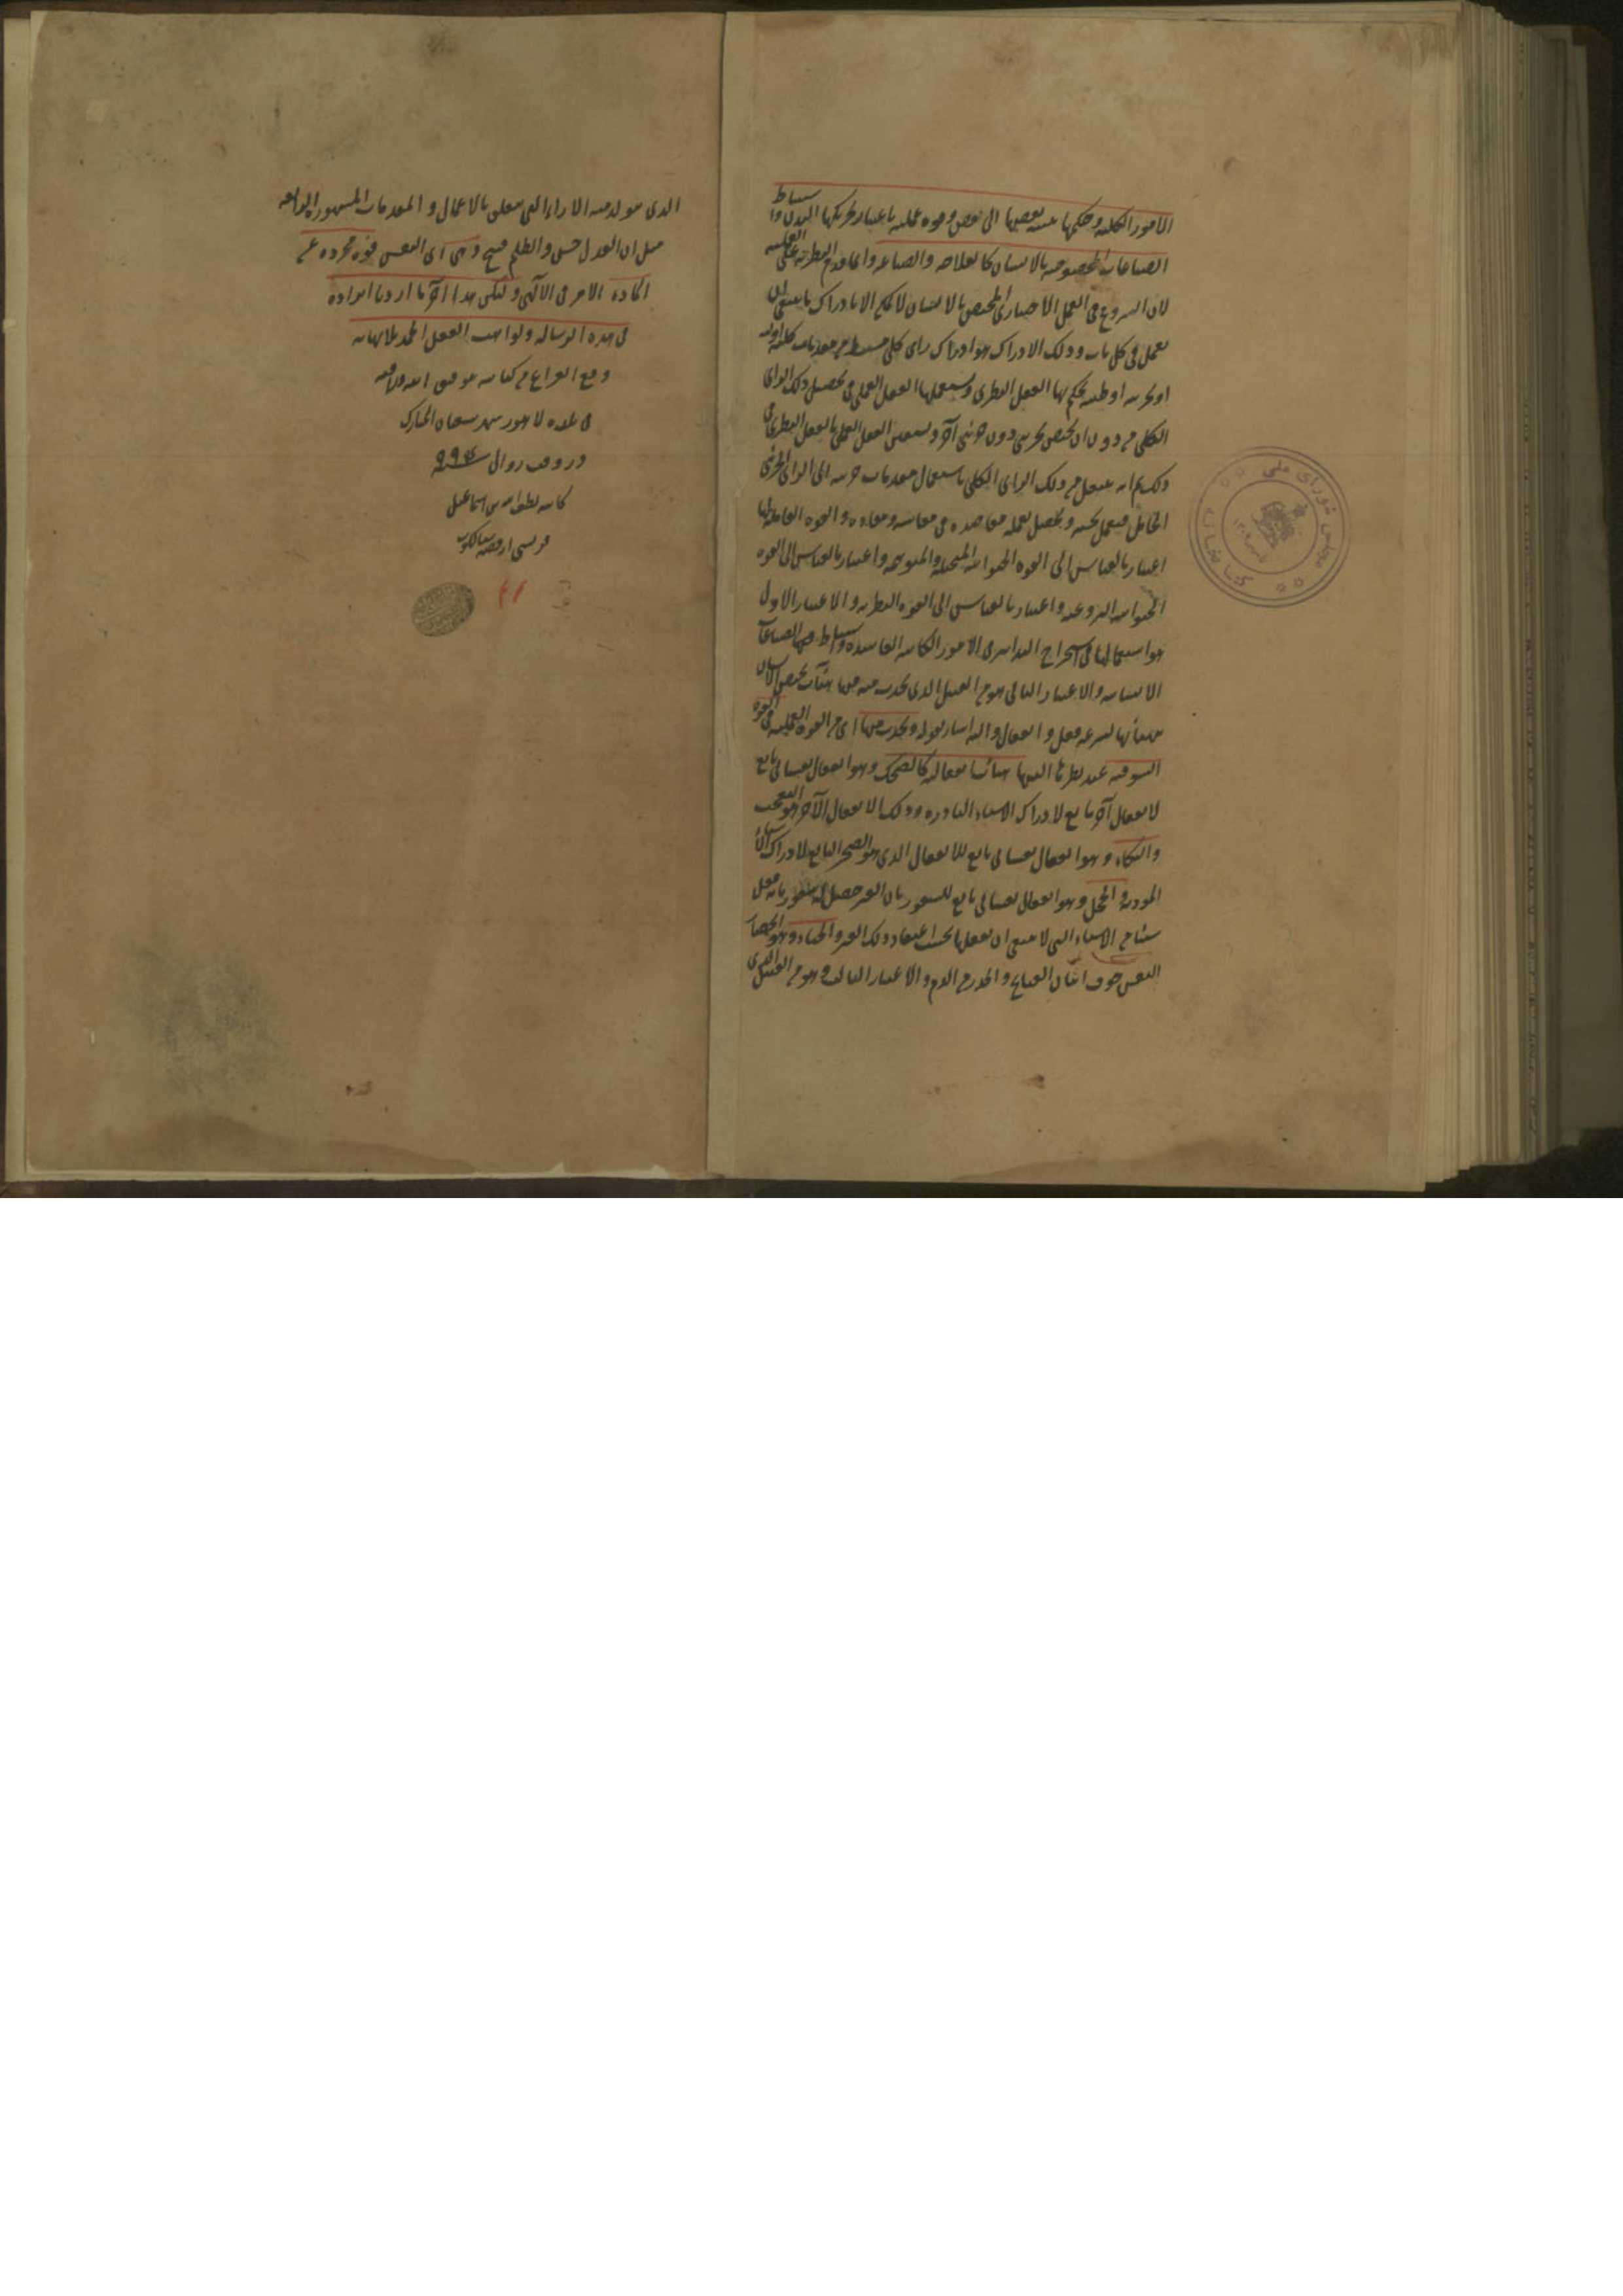 الامور الكلية وحكمها بنسبة بعضها الى بعض وقوة عملية باعتبار تحريكها البدن واستنباط
الصناعات المخصوصة بالانسان كالفلاحة والصناعة وانما قدم النظرية على العملية
لان الشروع في العمل الاختياري المختص بالانسان لا يمكن الا بادراك ما ينبغي ان
يعمل في كل باب وذلك الادراك هو ادراك راى كلي مستنبط من مقدمات كلية اولية
او تجربية او ظنية يحكم بها العقل النظري ويستعملها العقل العملي في تحصيل ذلك الراى
الكلي من دون ان يختص بجزئي دون جزئي آخر ويستعين العقل العملي بالعقل النظري في
ذلك ثم انه ينتقل من ذلك الراى الكلي باستعمال مقدمات جزئية الى الراى الجزئي
الحاصل فيعمل بحسبه ويحصل بعمله مقاصده في معاشه ومعاده والقوة العاملة لها
اعتبار بالقياس الى القوة الحيوانية المتخيلة والمتوهمة واعتبار بالقياس الى القوة
الحيوانية النزوعية واعتبار بالقياس الى القوة النظرية والاعتبار الاول
هو استعمالها في استخراج التدابير في الامور الكائنة الفاسدة واستنباط الصناعات
الانسانية والاعتبار الثاني هو من القبيل الذي يحدث منه فيها هيآت يخص الانسان
يتهيأ بها لسرعة فعل وانفعال واليه اشار بقوله ويحدث منها اى من القوة العملية في القوة
الشوقية عند نظرها اليها هيآت انفعالية كالضحك وهو انفعال نفساني تابع
لانفعال آخر تابع لادراك الاشياء النادرة وذلك الانفعال الآخر هو التعجب
والبكاء وهو انفعال نفساني تابع للانفعال الذي هو الضجر التابع لادراك الاشياء
الموذية والخجل وهو انفعال نفساني تابع للشعور بان الغير حصل له شعور بانه فعل
شيئا من الاشياء التي لا ينبغي ان يفعلها بحسب اعتقاد ذلك الغير والحياء وهو انحصار
النفس خوف اتيان القبايح والحذر من الذم والاعتبار الثالث هو من القبيل
الذي يتولد منه الاراء التي يتعلق بالاعمال والمقدمات المشهورة الذايعة
مثل ان العدل حسن والظلم قبيح وهى اى النفس قوة مجردة عن
المادة الامر في الالهي وليكن هذا آخر ما اردنا ايراده
في هذه الرسالة ولواهب العقل الحمد بلا نهاية
وقع الفراغ من كتابته بتوفيق الله
في بلدة لاهور شهر شعبان المبارك
در وقت زوال سنه ٩٩
كاتبه لطف الله بن اسماعيل
قريشي از قصبه
مجلس شورای ملی